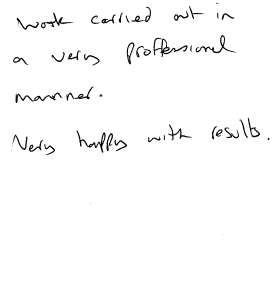 Work carried out in
a very proffessional
manner.
Very happy with results.